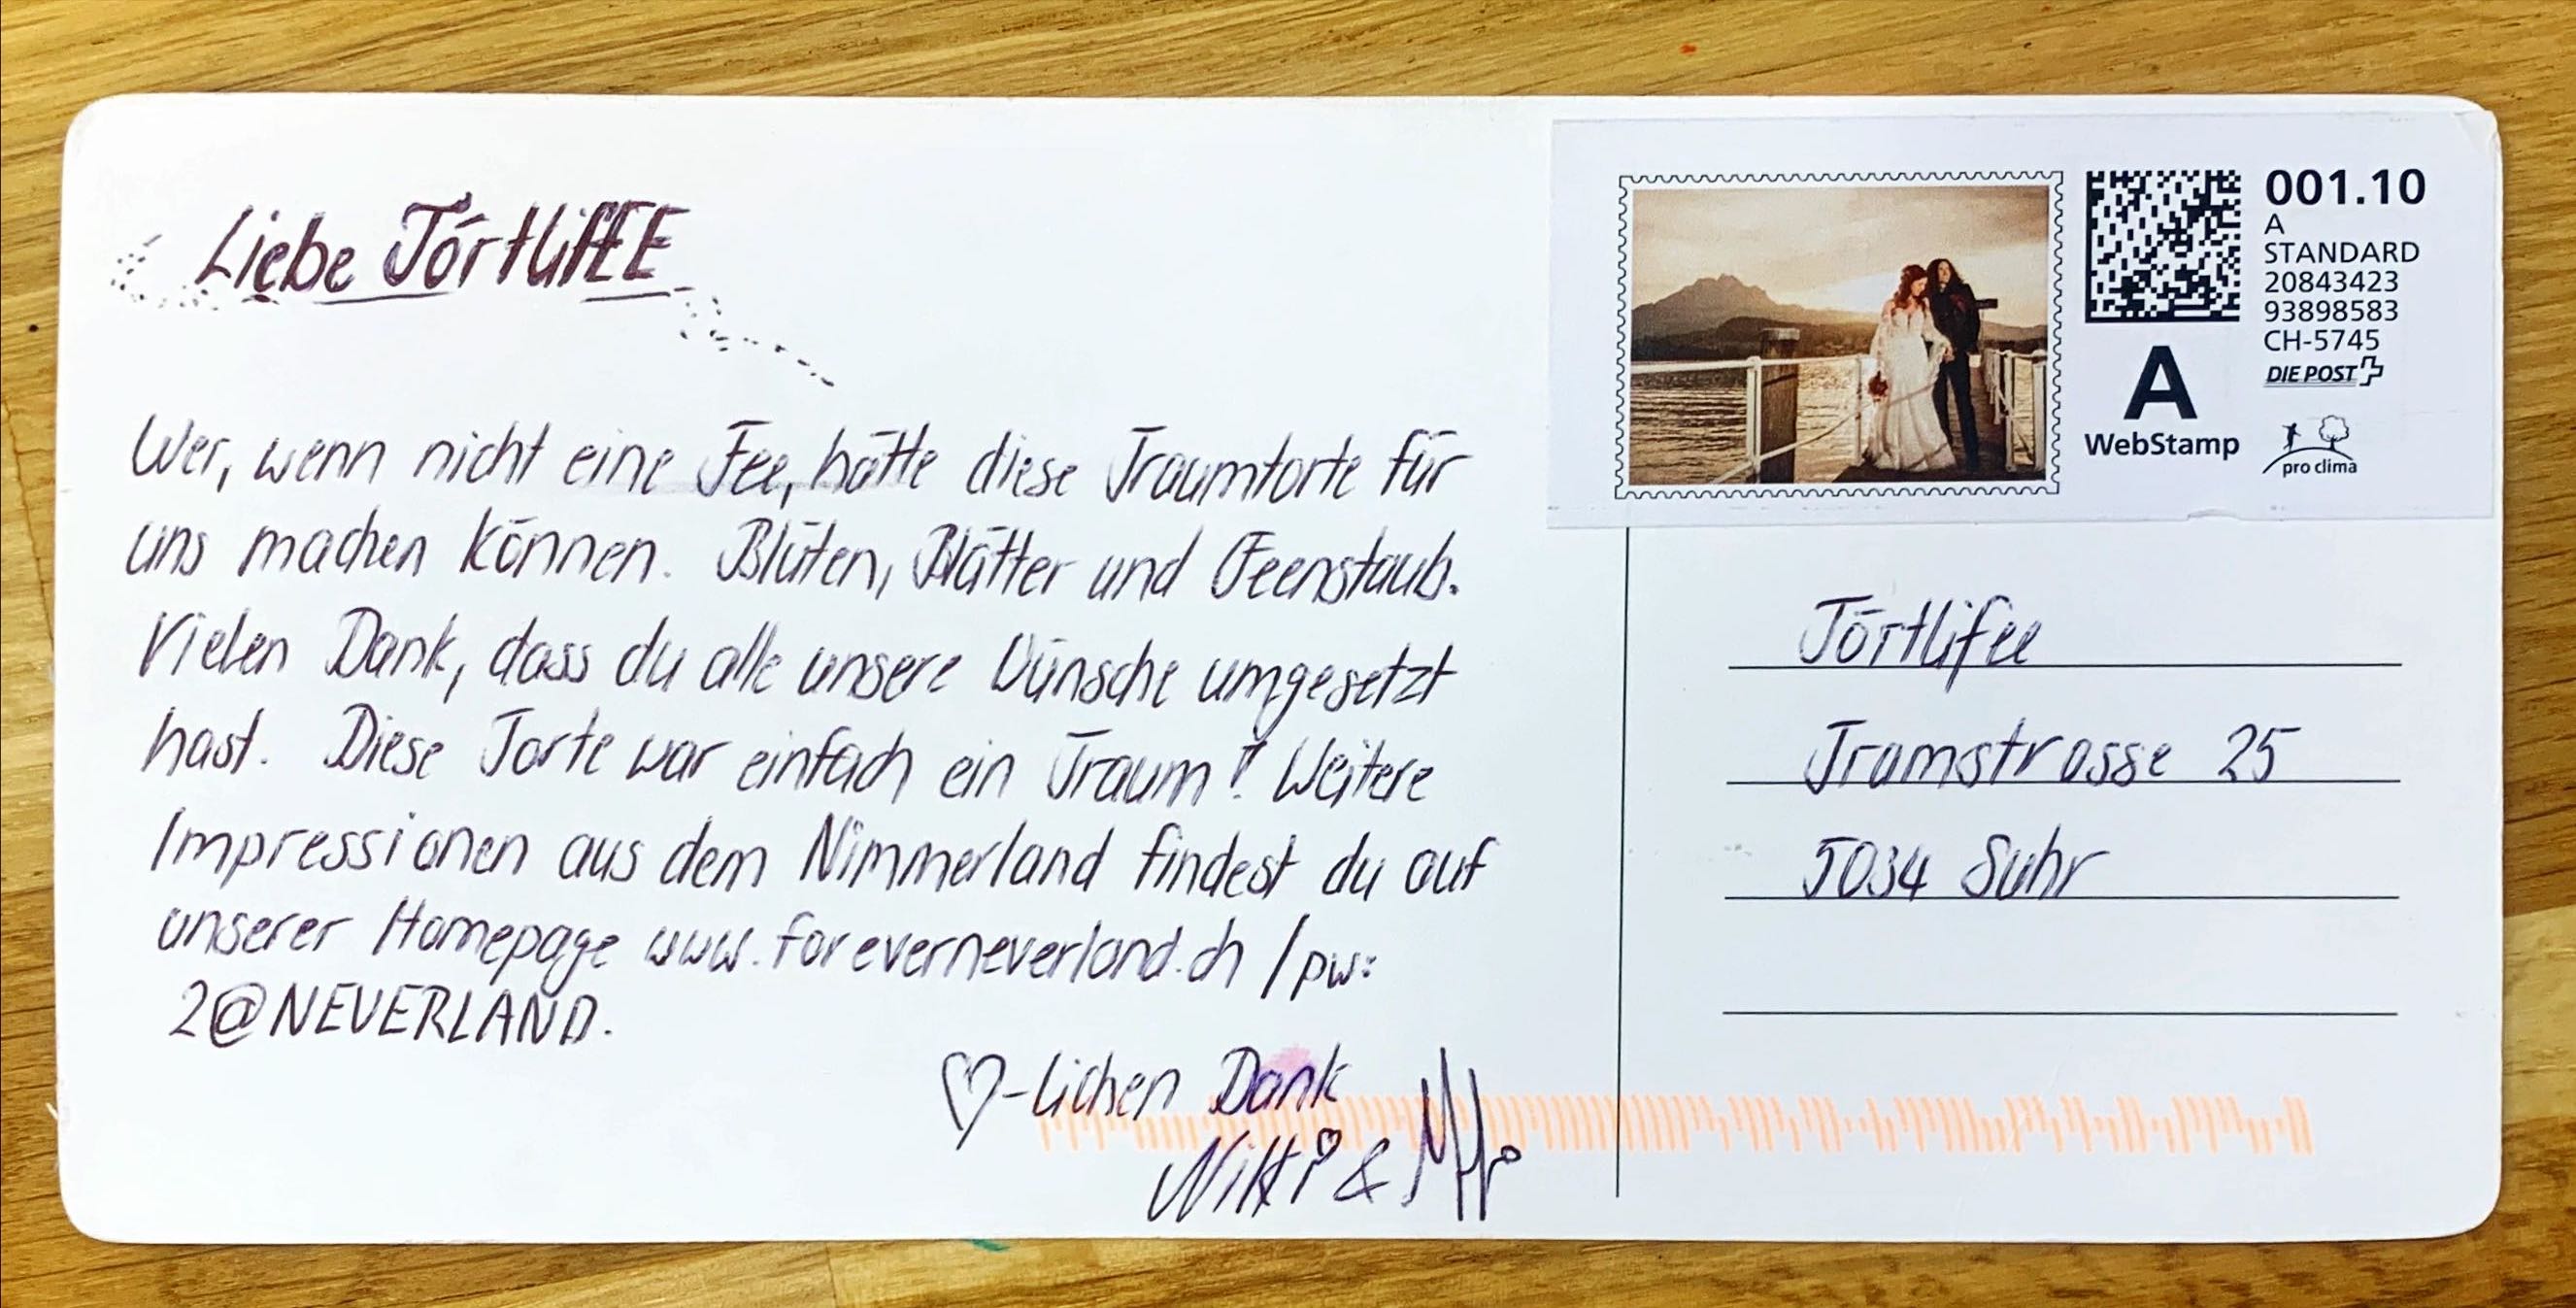 Liebe TörtlifEE
Wer, wenn nicht eine Fee, hätte diese Traumtorte für
uns machen können. Blüten, Blätter und Feenstaub.
Vielen Dank, dass du alle unsere Wünsche umgesetzt
hast. Diese Torte war einfach ein Traum! Weitere
Impressionen aus dem Nimmerland findest du auf
unserer Homepage www.foreverneverland.ch / pw:
2@NEVERLAND.
♡-lichen Dank
Nikki &
001.10
A
STANDARD
20843423
93898583
CH-5745
DIE POST
A
WebStamp
pro clima
Törtlifee
Tramstrasse 25
5034 Suhr